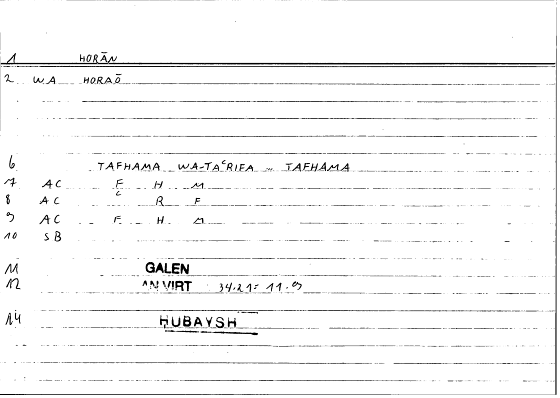 1 HORĀN
2 WA HORAŌ
6 TAFHAMA WA-TAʿRIFA .. TAFHAMA
7 AC F H M
8 AC ʿ R F
9 AC F H M
10 SB
11 GALEN
12 AN VIRT 34.21 = 11.9
14 HUBAYSH